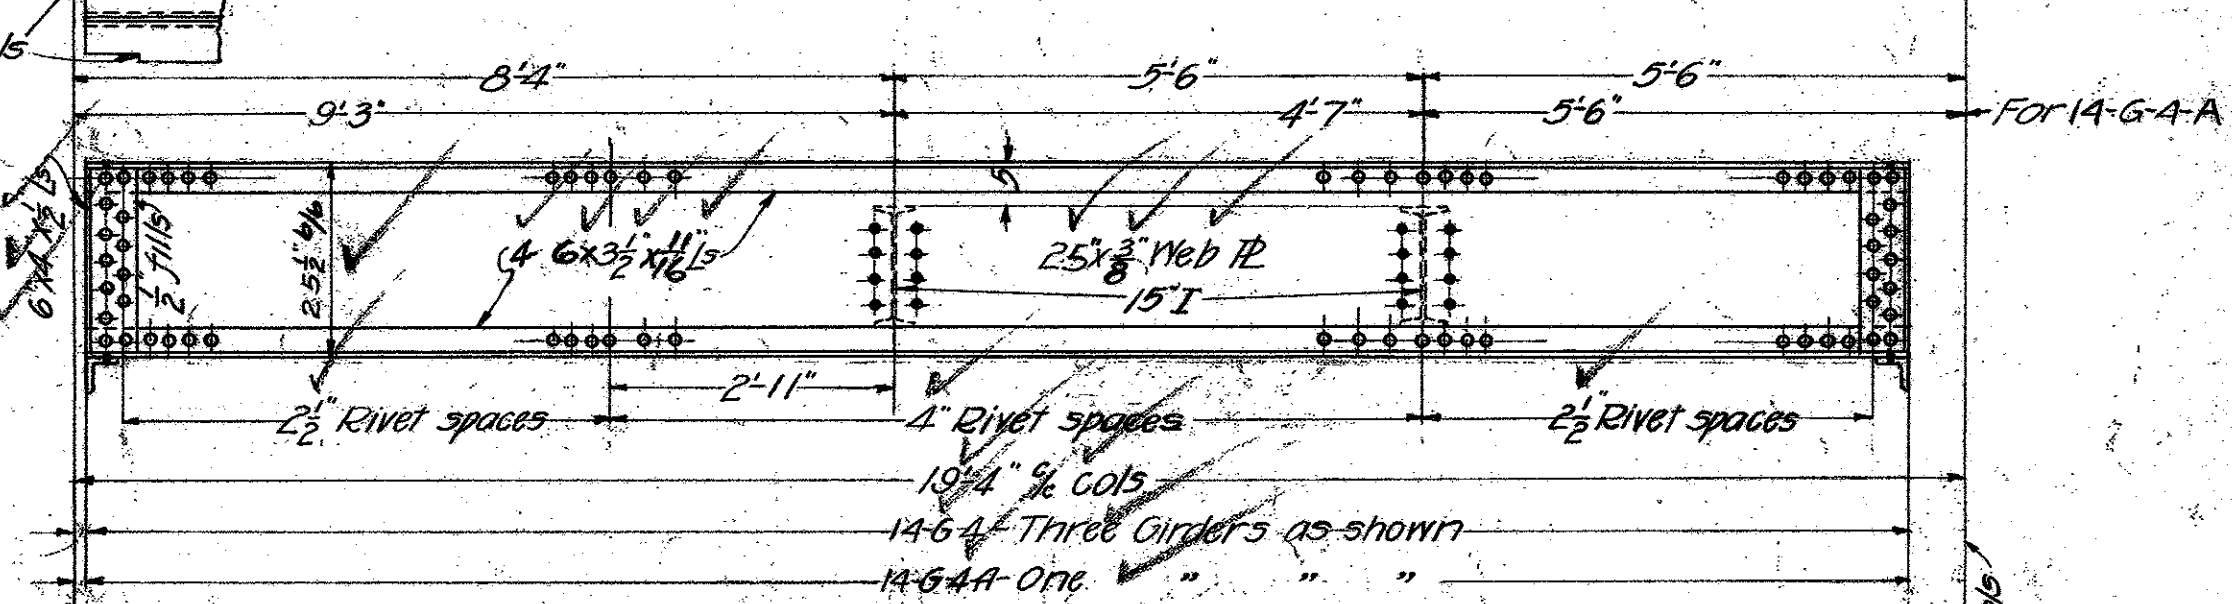 ls
8'-4" 5'-6" 5'-6"
9'-3" 4'-7" 5'-6" For 14-G-4-A
5"
6 x 4 x 1/2 Ls
1/2" fills
25 1/2" b/b
4 6x3 1/2"x11/16" Ls
25"x3/8" Web PL
15" I
2'-11"
2 1/2" Rivet spaces 4" Rivet spaces 2 1/2" Rivet spaces
19'-4" c/c cols
14-G-4- Three Girders as shown
14-G-4A- One " " "